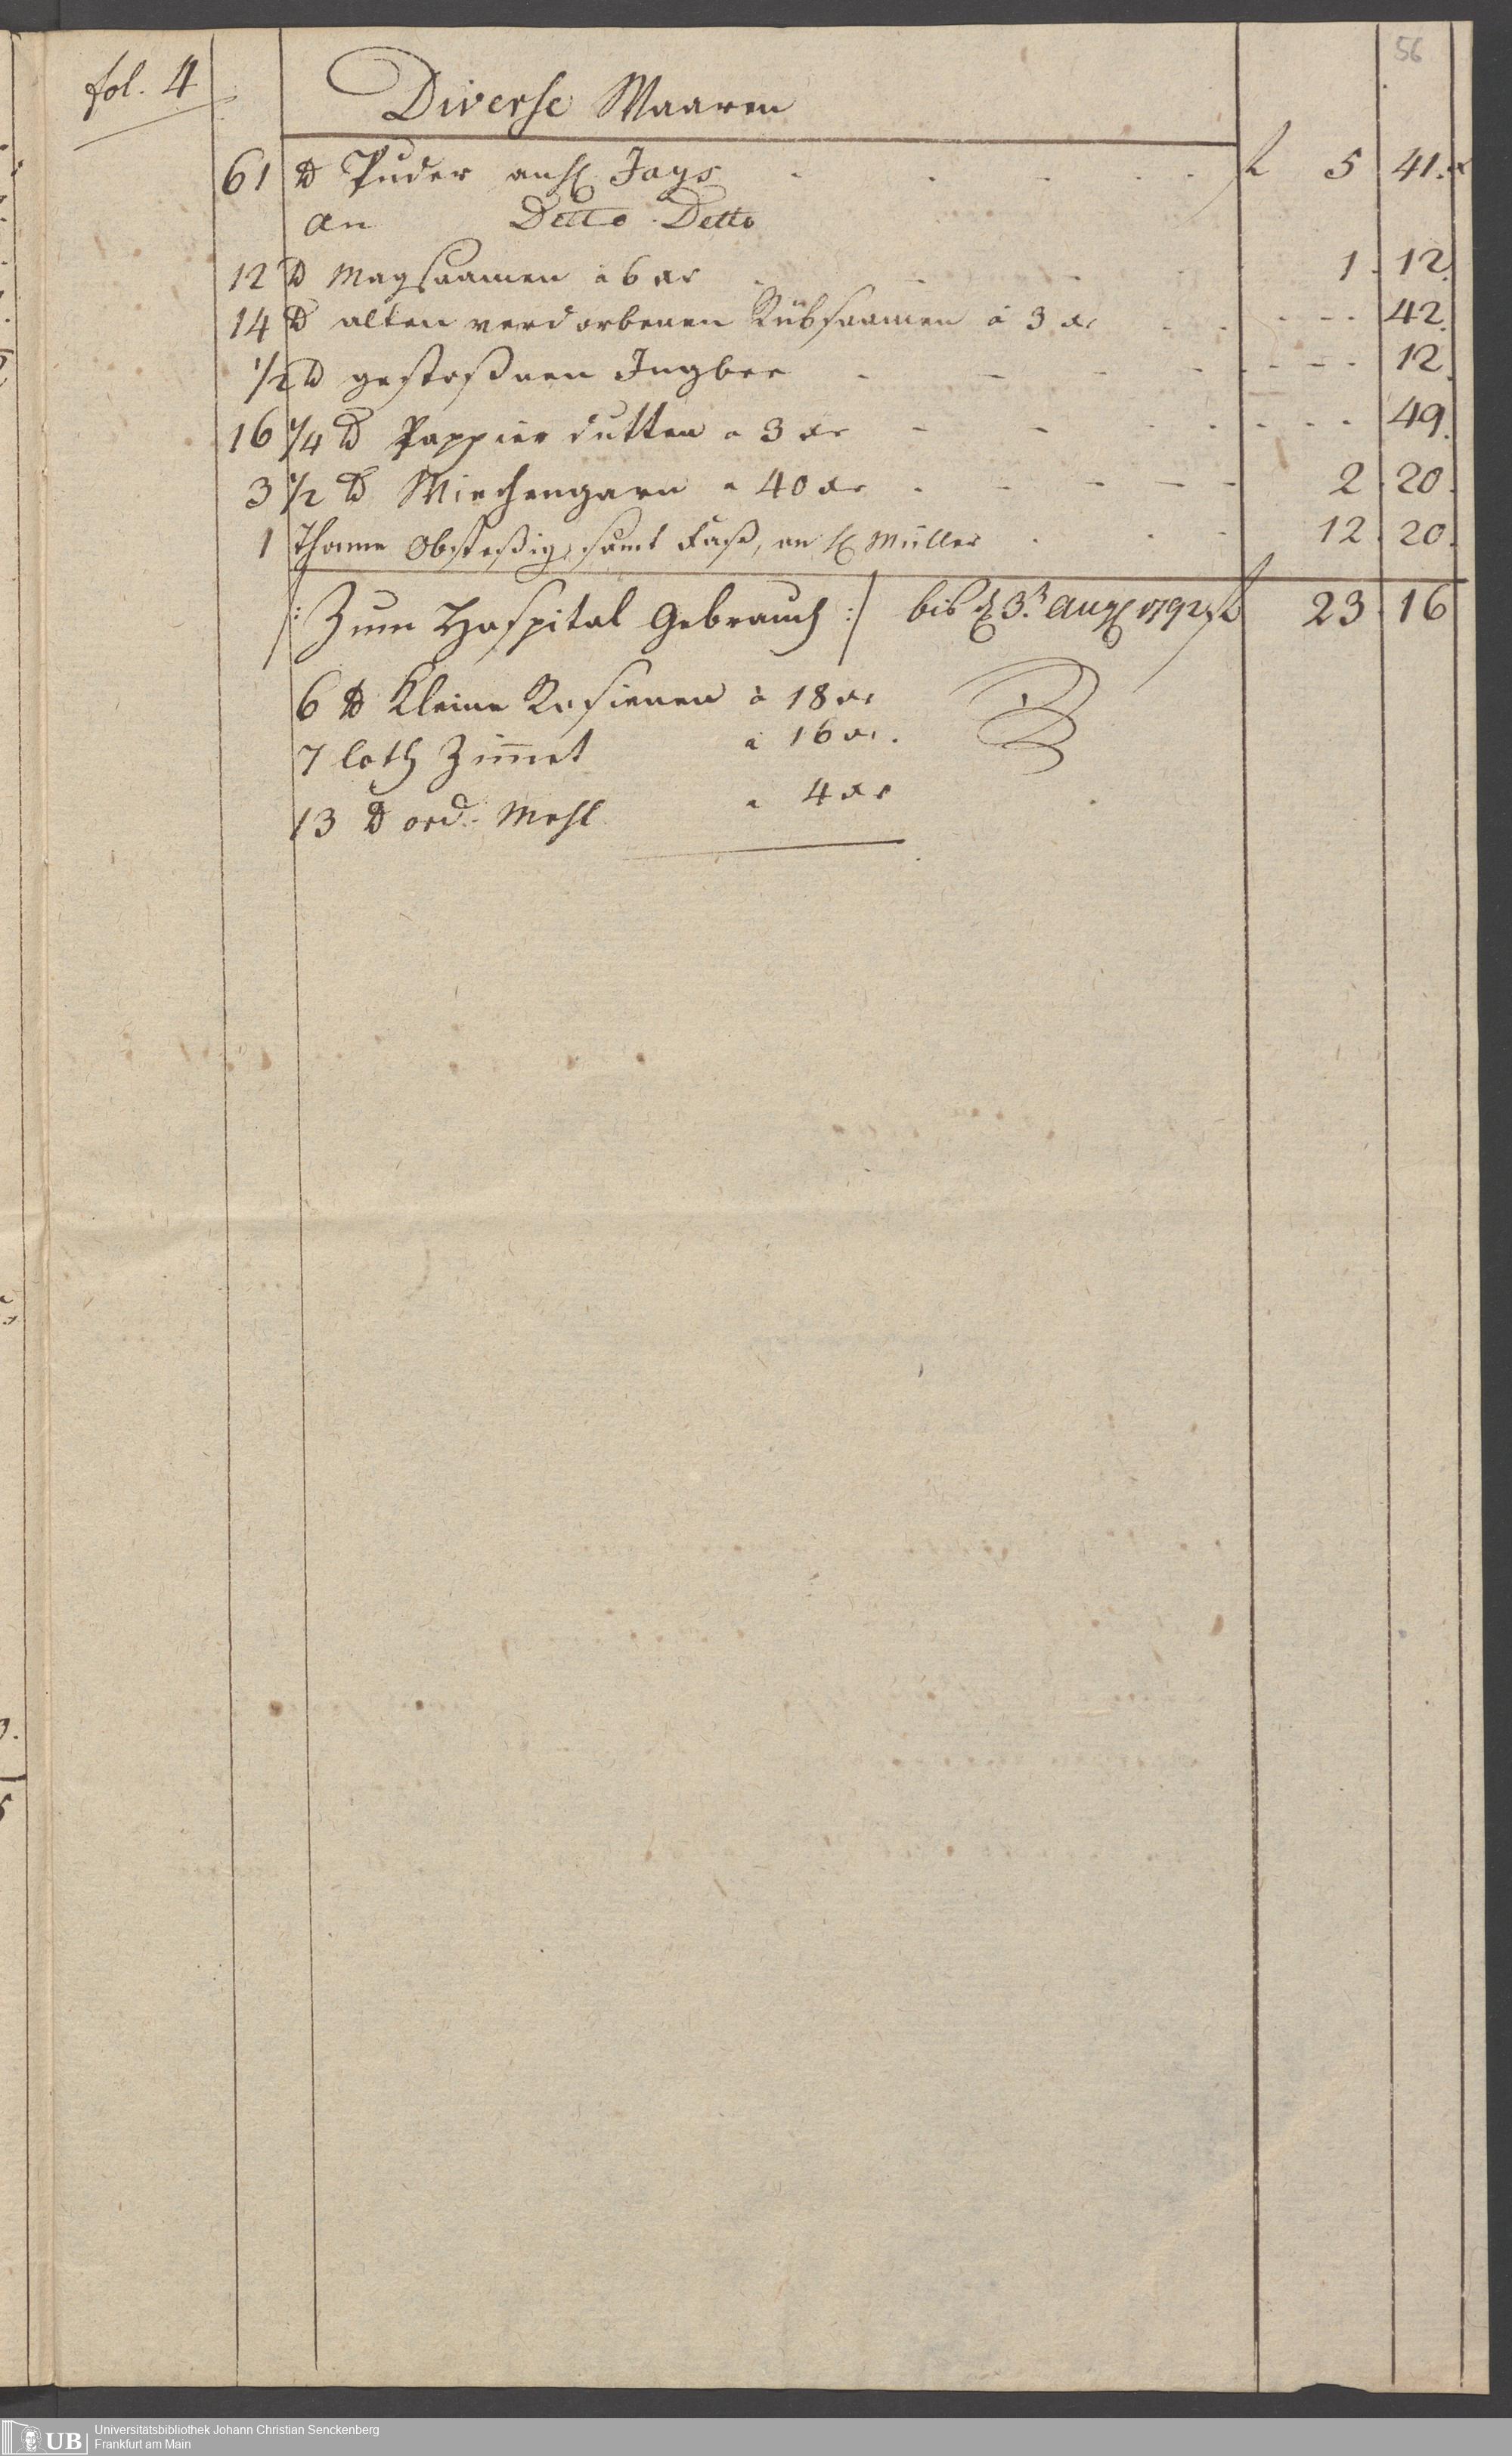 56
fol. 4
Diverse Waaren
61 ℔ Puder an H Jays - - - - f 5 41. x
an Detto Detto
12 ℔ Magsaamen a 6 xr - - - 1. 12.
14 ℔ alten verdorbenen Rübsaamen á 3 xr - - - - 42.
1/2 ℔ gestoßnen Ingber - - - - - 12.
16 1/4 ℔ Pappier dutten a 3 xr - - - - - 49.
3 1/2 ℔ Wiechengarn a 40 xr - - - - 2. 20.
1 Thonne Obsteßig, samt Faß, an H Müller - - - 12. 20.
/: Zum Hospital Gebrauch :/ bis d 3. Aug 1792 f 23. 16
6 ℔ Kleine Rosienen à 18 xr
7 loth Zim̄et a 16 xr.
13 ℔ ord. Mehl a 4 xr
UB Universitätsbibliothek Johann Christian Senckenberg
Frankfurt am Main